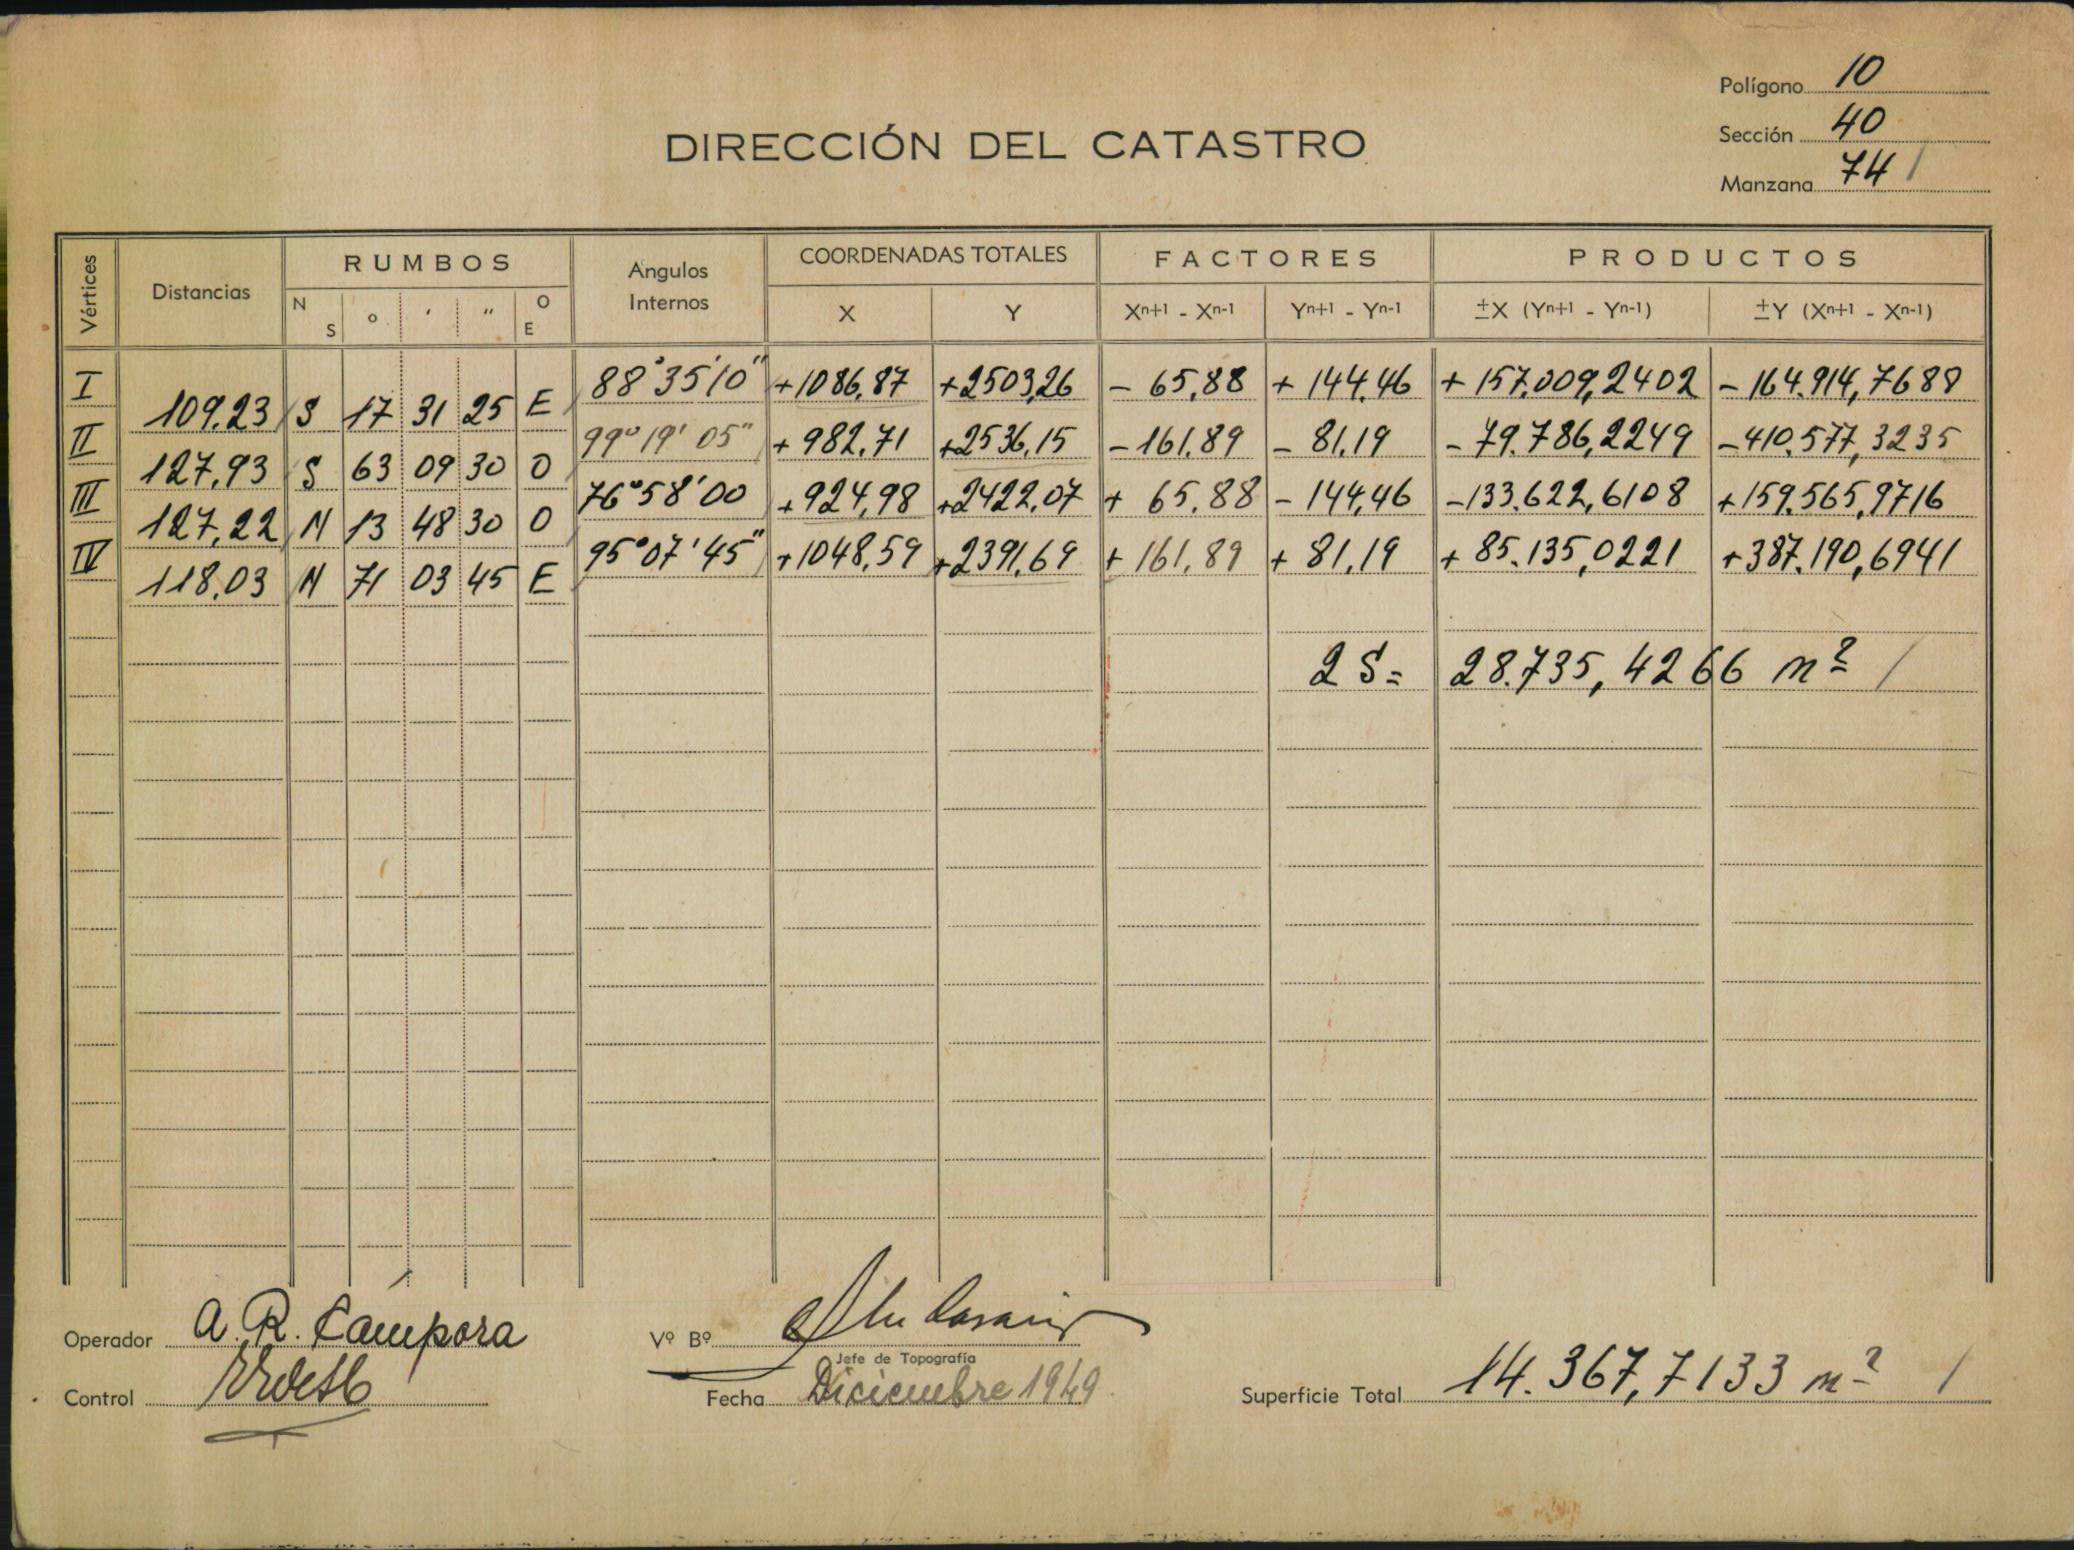 Polígono 10
Sección 40
Manzana 74
DIRECCIÓN DEL CATASTRO
Vértices Distancias RUMBOS Angulos Internos COORDENADAS TOTALES FACTORES PRODUCTOS
N S o ' " O E X Y Xn+1 - Xn-1 Yn+1 - Yn-1 ±X (Yn+1 - Yn-1) ±Y (Xn+1 - Xn-1)
I 88°35'10" +1086,87 +2503,26 - 65,88 + 144,46 + 157.009,2402 - 164.914,7688
109.23 S 17 31 25 E
II 99° 19' 05" + 982,71 +2536,15 - 161,89 - 81,19 - 79.786,2249 - 410.577,3235
127,93 S 63 09 30 O
III 76°58'00 + 924,98 +2422,07 + 65,88 - 144,46 - 133.622,6108 + 159.565,9716
127,22 N 13 48 30 O
IV 95°07'45" +1048,59 +2391,69 + 161,89 + 81,19 + 85.135,0221 + 387.190,6941
118.03 N 71 03 45 E
2 S = 28.735,4266 m²
Operador A. R. Cámpora Vº Bº
Jefe de Topografía
Control Fecha Diciembre 1949 Superficie Total 14.367,7133 m²